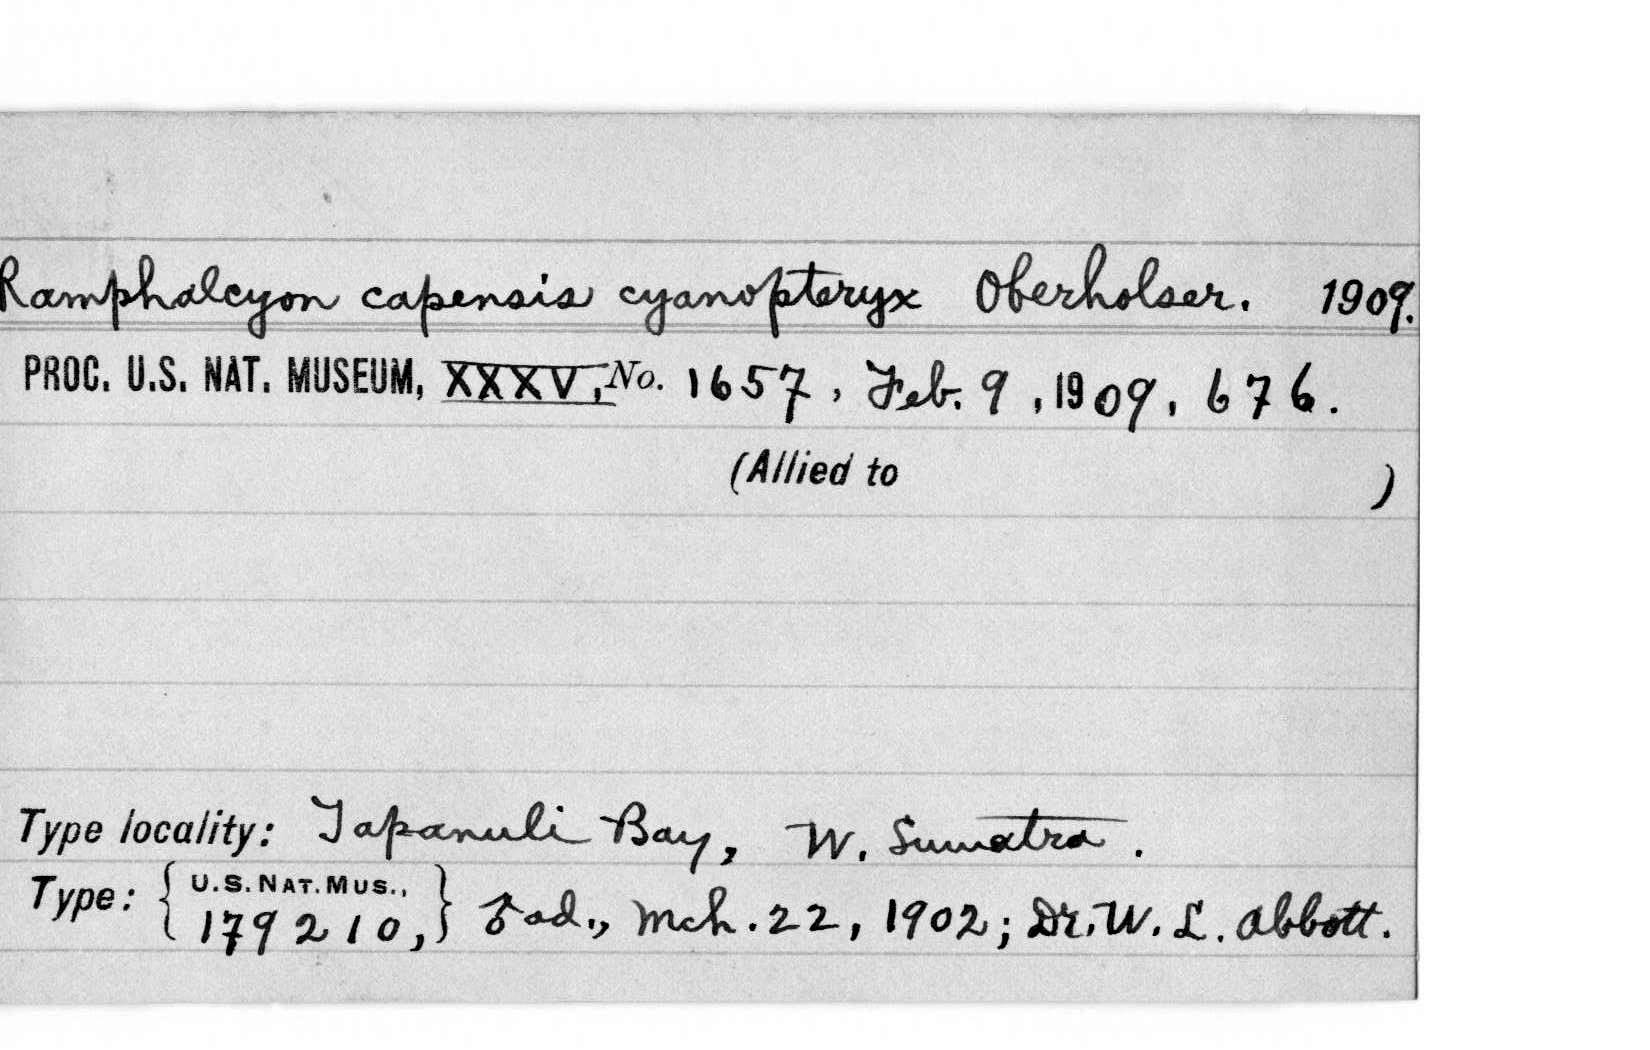 Ramphalcyon capensis cyanopteryx Oberholser. 1909.
PROC. U.S. NAT. MUSEUM, XXXV, No. 1657, Feb. 9, 1909, 676.
(Allied to )
Type locality: Tapanuli Bay, W. Sumatra.
Type: { U.S. NAT. MUS., 179210, } ♂ ad., Mch. 22, 1902; Dr. W. L. Abbott.